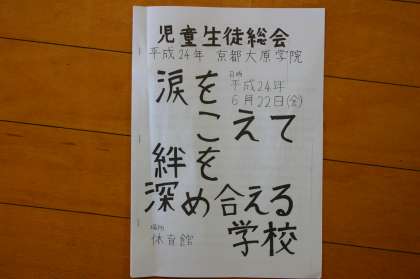 児童生徒総会
平成24年 京都大原学院
涙を
日時
平成24年
6月22日(金)
こえて
絆を
深め合える
学校
場所
体育館